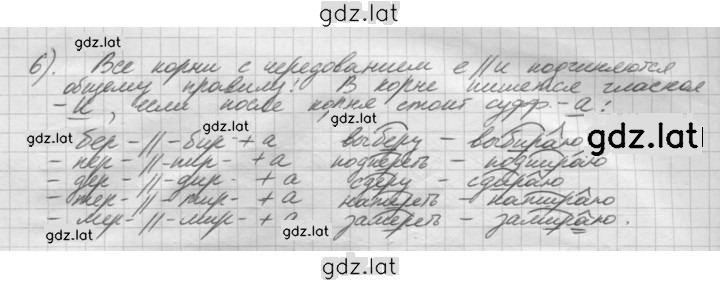 gdz.lat
gdz.lat
6). Все корни с чередованием е // и подчиняются
общему правилу: В корне пишется гласная
gdz.lat
- и, если после корня стоит суфф. -а:
- бер- // -бир- + а выберу - выбираю
gdz.lat
- пер- // -пир- + а подпереть - подпираю
- дер- // -дир- + а сдеру - сдираю
- тер- // -тир- + а натереть - натираю
- мер- // -мир- + а замереть - замираю.
gdz.lat
gdz.lat
gdz.lat
gdz.lat